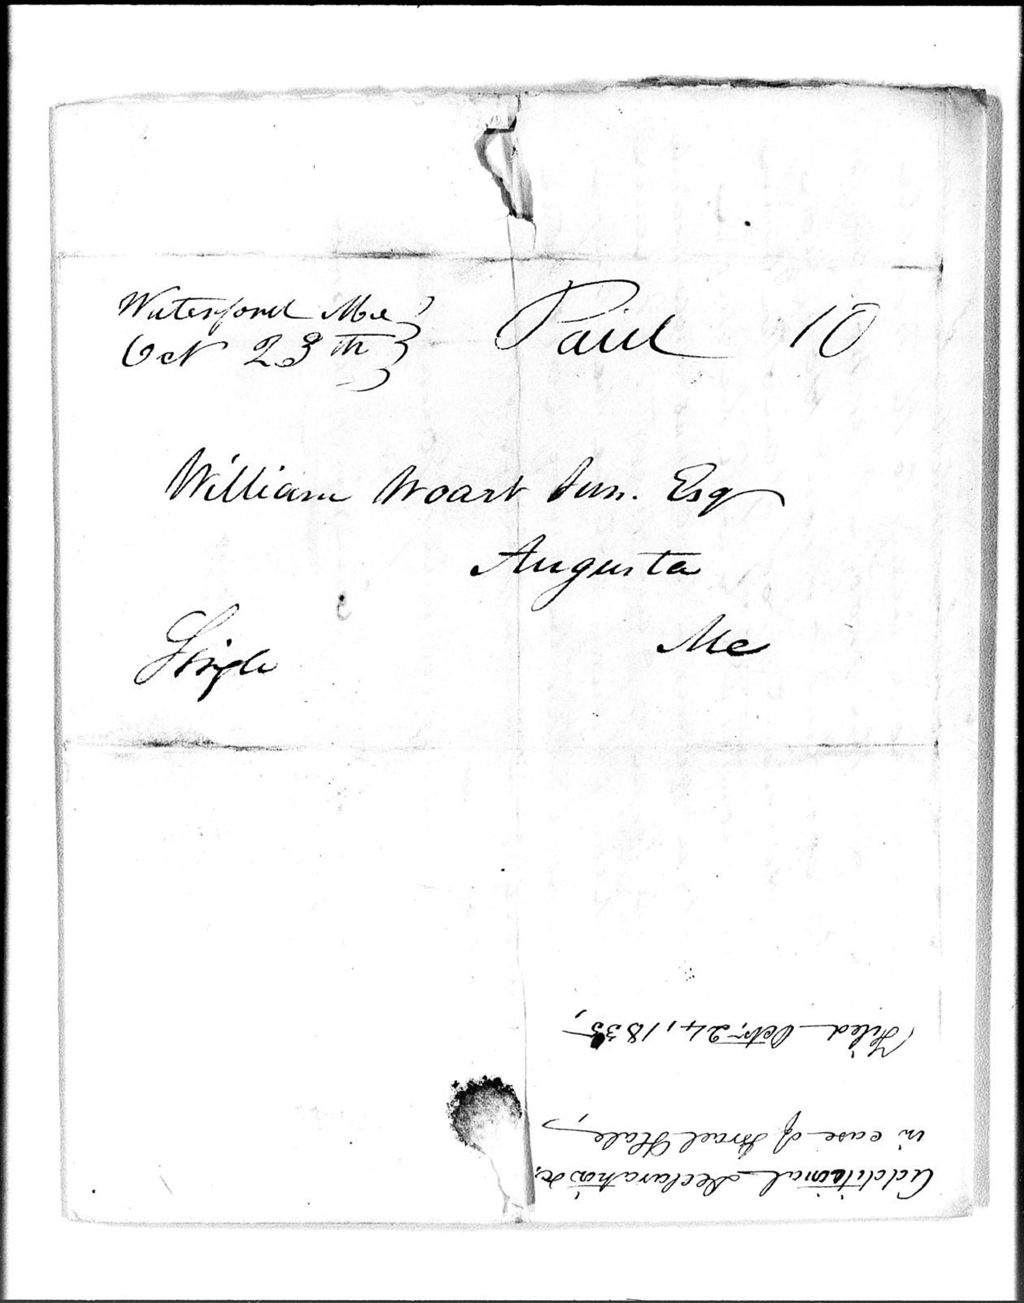 Waterford Me
Oct 23th
Paid 10
William Woart Jun. Esq
Augusta
Me
Single
Additional declaration &c,
in case of Israel Hale,
Filed Octr. 24, 1835,